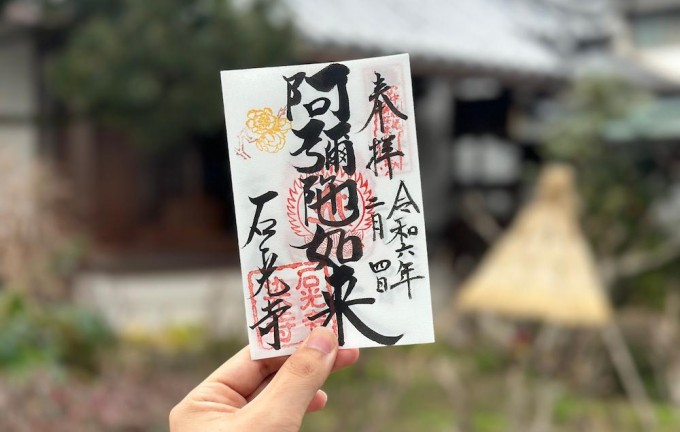 奉拝
令和六年
二月四日
阿彌陀如来
石光寺